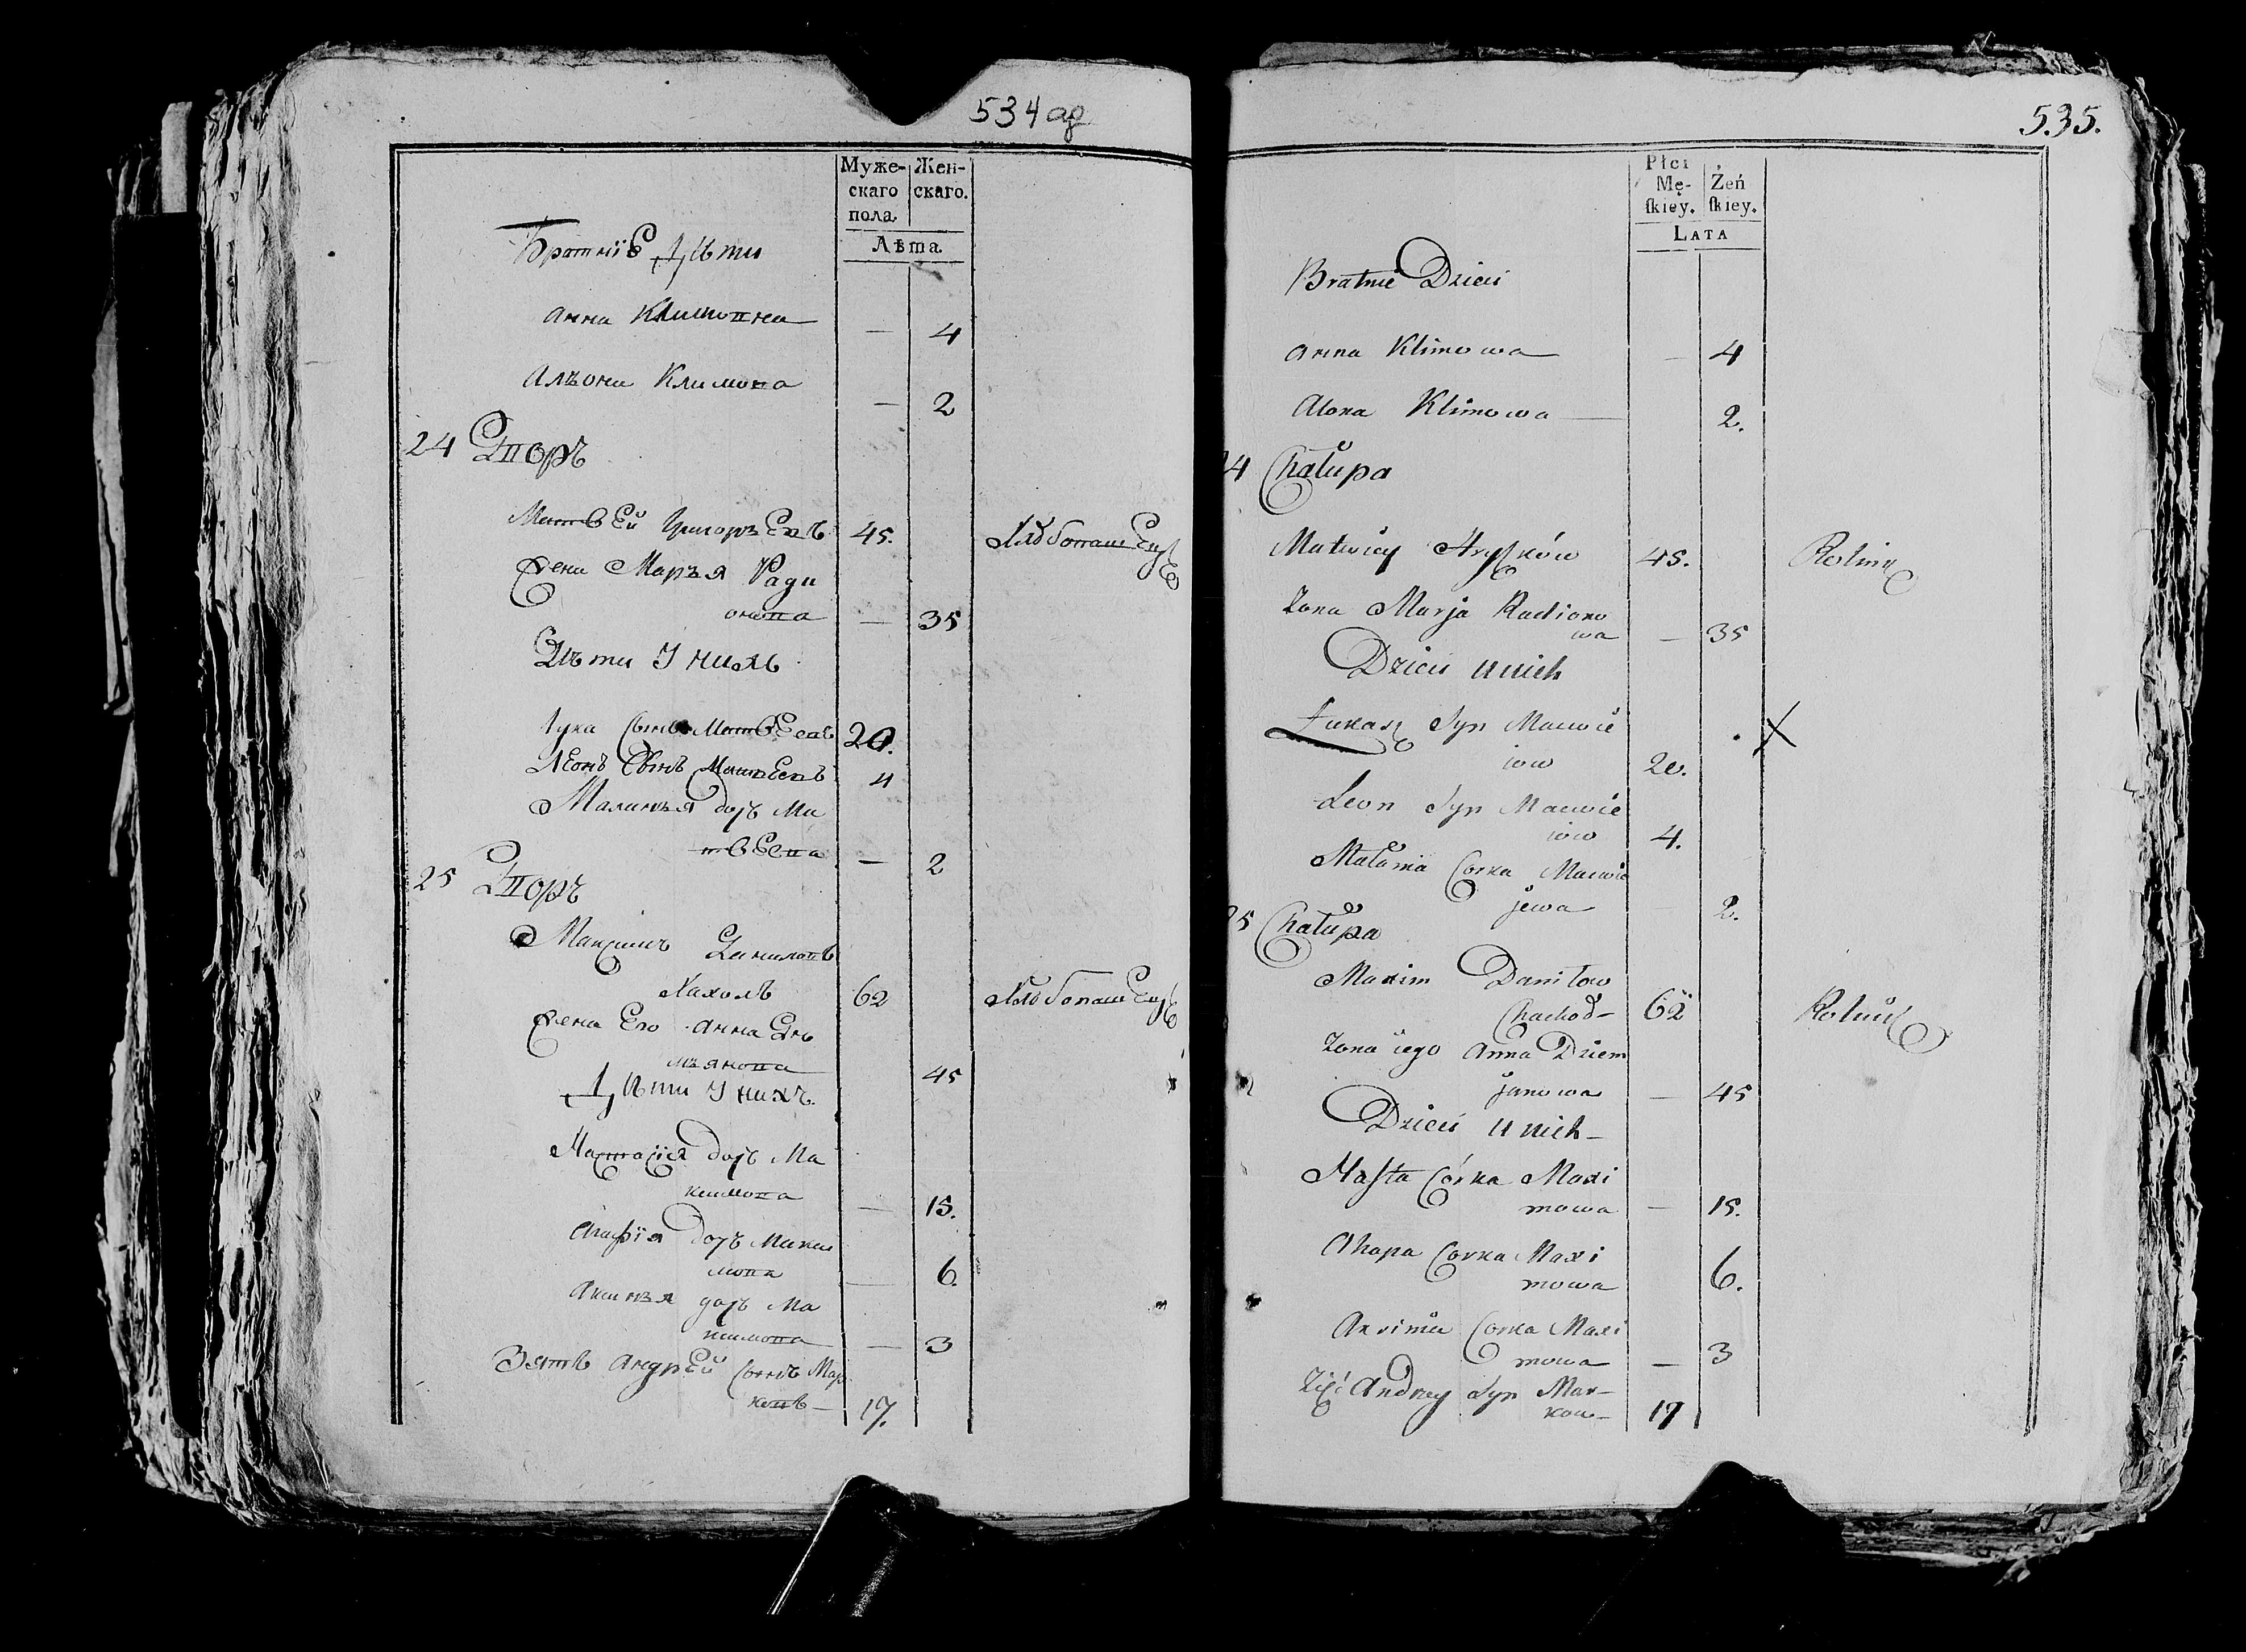 534 ад
Муже- Жен-
скаго скаго.
пола
Лѣта.
Братнїе Дѣти
Анна Климовна — 4
Алъона Климова — 2
24 Дворъ
Матвей Григорьевъ 45.
Жена Марья Ради
онова — 35
Дѣти У нихъ
Лука Сынъ Матвеевъ 20.
Леонъ Сынъ Матвеевъ 4
Маланья дочь Ма
твеева — 2
25 Дворъ
Максимъ Даниловъ
62
Жена Его Анна Де
мьянова 45
Дѣти У нихъ.
Настасїя дочь Ма
ксимова — 15.
Агафїя дочь Макси
мова — 6.
Аксинья дочь Ма
ксимова — 3
Зять Андрей Сынъ Мар
ковъ — 17.
535.
Płci
Mę- Żeń
ſkiey. ſkiey.
LATA
Bratnie Dzieci
Anna Klimowa — 4
Alona Klimowa — 2.
4 Chałupa
Matwiey 45. Rolnik
Zona Marja Radiono
wa — 35
Dzieci u nich
Łukasz Syn Macwie
iow 20.
Leon Syn Macwie
iow 4.
Małania Corka Macwie
jewa — 2.
25 Chałupa
Maxim Daniłow
62 Rolnik
Zona iego Anna Dziem
janowa — 45
Dzieci u nich —
Nasta Córka Maxi
mowa — 15.
Ahapa Corka Maxi
mowa 6.
Axinia Corka Maxi
mowa — 3
Zięć Andrey Syn Mar-
kow — 17